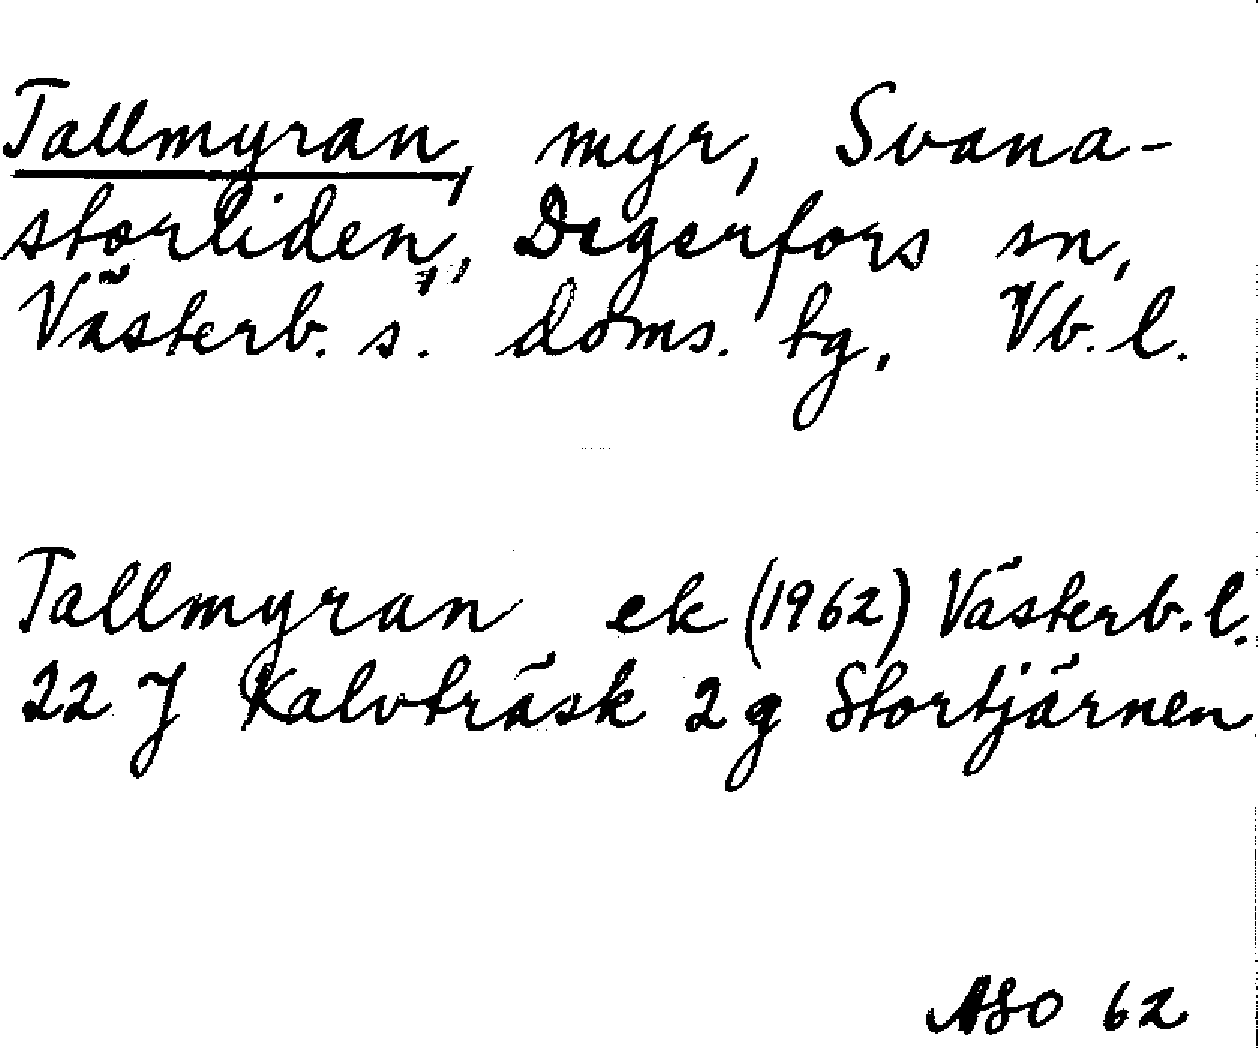 Tallmyran, myr, Svana-
storliden, Degerfors sn,
Västerb. s. doms. tg, Vb. l.
Tallmyran ek (1962) Västerb. l.
22 J Kalvträsk 2 g Stortjärnen
ASO 62